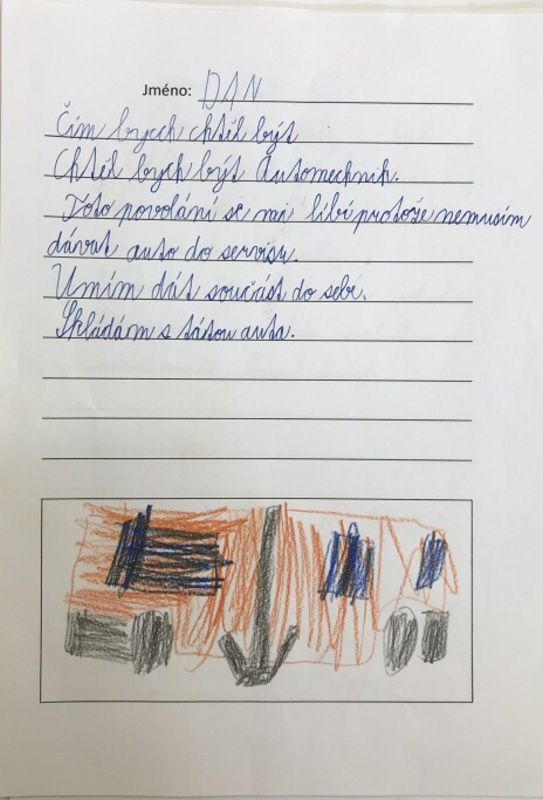 Jméno: DAN
Čím bych chtěl být
Chtěl bych být Automechnik.
Toto povolání se mi libí protože nemusím
dávat auto do servisu.
Umím dát součást do sebe.
Skládám s tátou auta.